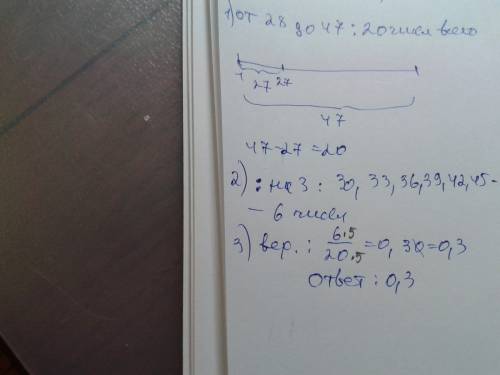 1) от 28 до 47 : 20 чисел всего
1 27 27
47
47-27=20
2) : на 3 : 30, 33, 36, 39, 42, 45 -
- 6 чисел
3) вер. : 6·5/20·5 = 0,30 = 0,3
Ответ : 0,3